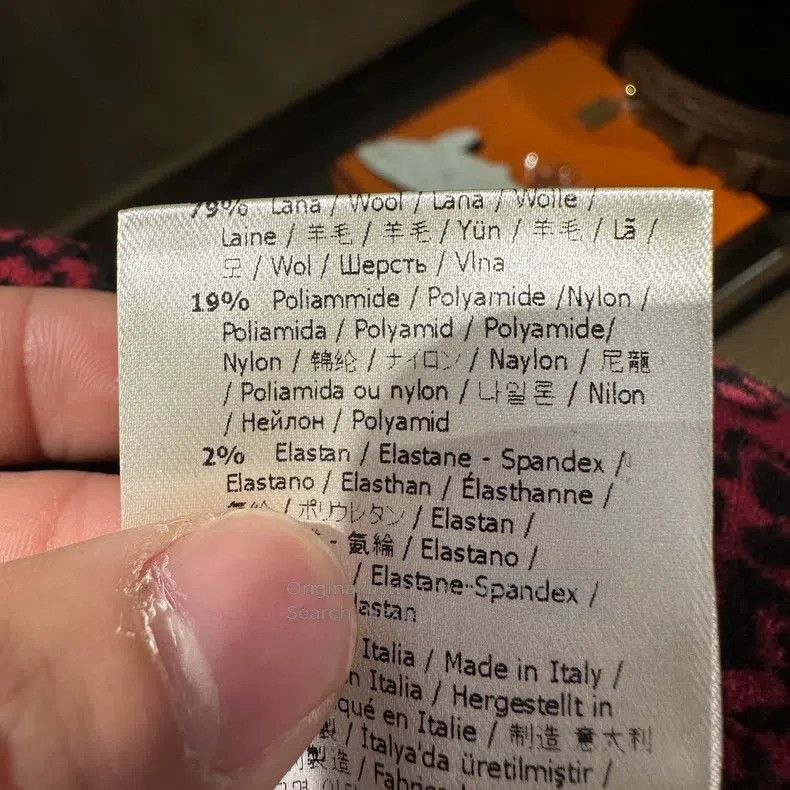 79% Lana / Wool / Lana / Wolle /
Laine / 羊毛 / 羊毛 / Yün / 羊毛 / Lã /
모 / Wol / Шерсть / Vlna
19% Poliammide / Polyamide /Nylon /
Poliamida / Polyamid / Polyamide/
Nylon / 锦纶 / ナイロン / Naylon / 尼龍
/ Poliamida ou nylon / 나일론 / Nilon
/ Нейлон / Polyamid
2% Elastan / Elastane - Spandex /
Elastano / Elasthan / Élasthanne /
纶 / ポリウレタン / Elastan /
- 氨綸 / Elastano /
/ Elastane-Spandex /
lastan
Original
Search
Italia / Made in Italy /
n Italia / Hergestellt in
qué en Italie / 制造 意大利
製 / İtalya'da üretilmiştir /
製造 /